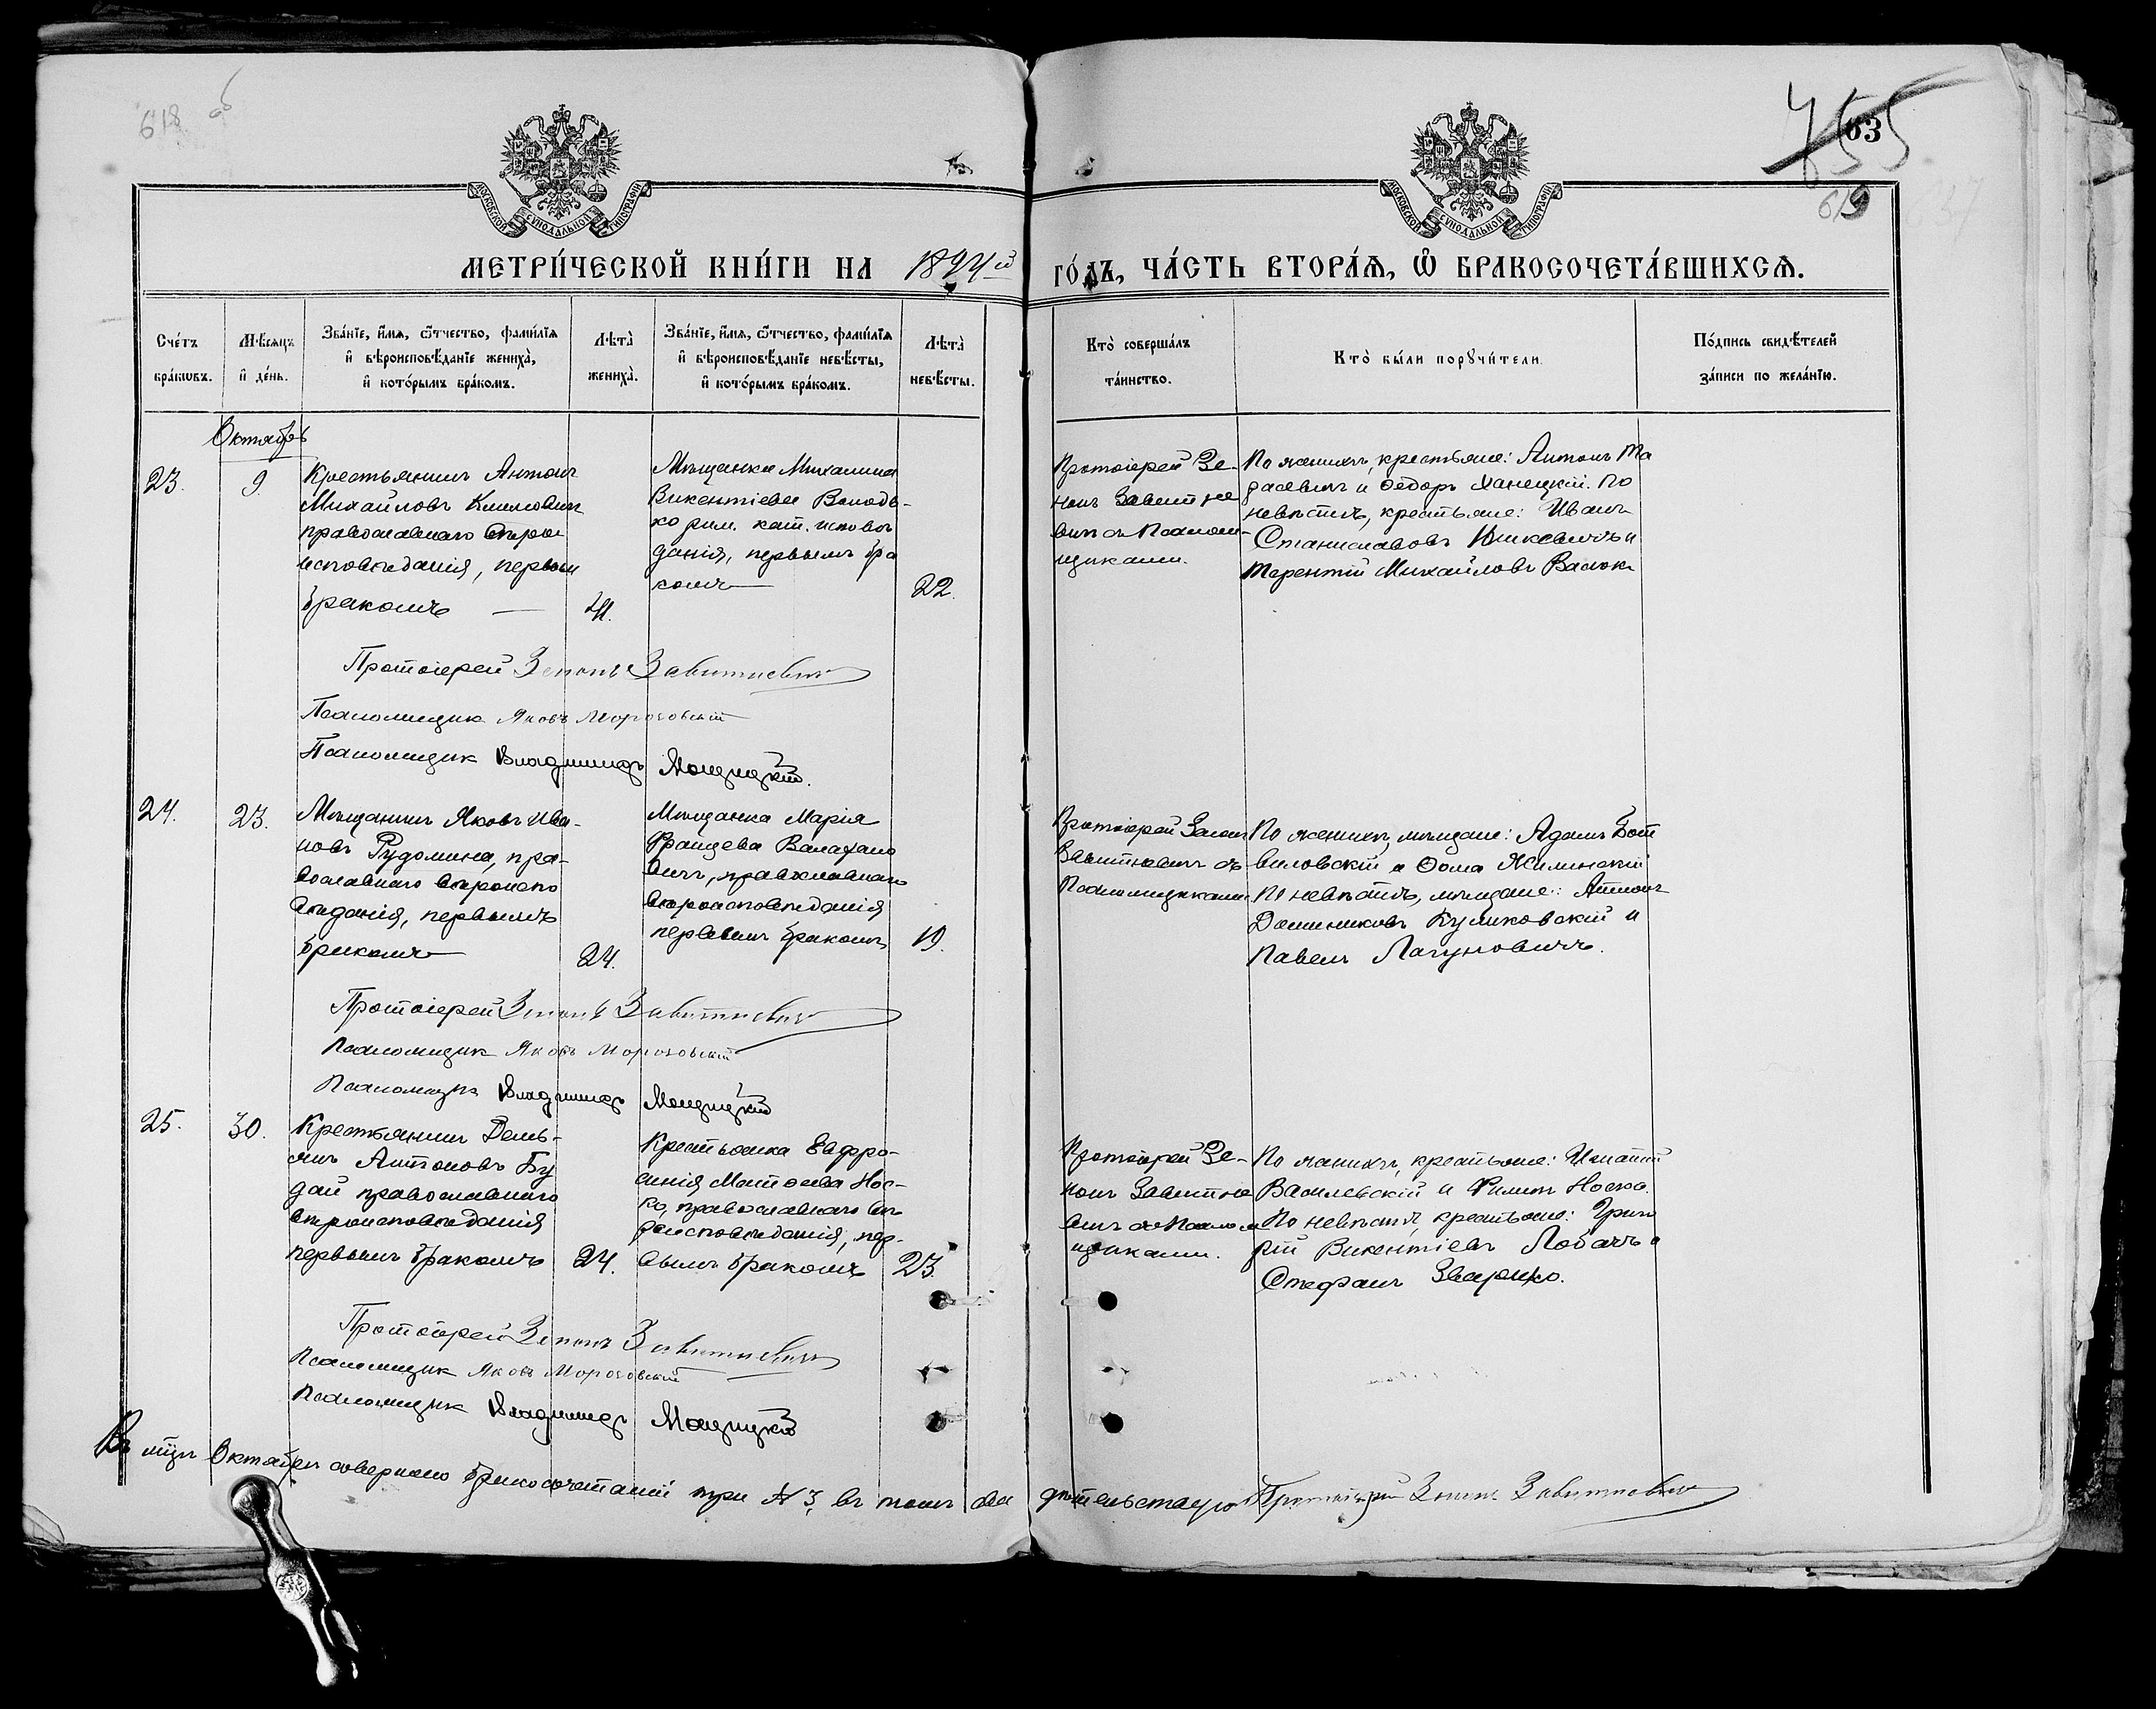 618 об
63
755
619
МОСКОВСКОЙ СѴНОДАЛЬНОЙ ТИПОГРАФІИ
МОСКОВСКОЙ СѴНОДАЛЬНОЙ ТИПОГРАФІИ
МЕТРИ́ЧЕСКОЙ КНИ́ГИ НА 1894й ГО́ДЪ, ЧА́СТЬ ВТОРА́Ѧ, Ѽ БРАКОСОЧЕТА́ВШИХСѦ.
Сче́тъ бра́кѡвъ.
Мѣ́сяцъ и҆ де́нь.
Зва́нїе, и҆́мѧ, ѻ҆́тчество, фами́лїѧ
и҆ вѣроисповѣ́данїе жениха̀,
и҆ кото́рымъ бра́комъ.
Лѣта̀ жениха̀.
Зва́нїе, и҆́мѧ, ѻ҆́тчество, фами́лїѧ
и҆ вѣроисповѣ́данїе невѣ́сты,
и҆ кото́рымъ бра́комъ.
Лѣта̀ невѣ́сты.
Кто̀ соверша́лъ
та́инство.
Кто̀ бы́ли порꙋчи́тели.
По́дпись свидѣ́телей
за́писи по жела́нїю.
Октябрь
23.
9.
Крестьянинъ Антонъ
Михайловъ Климовичъ
православнаго вѣро
исповѣданія, первым
бракомъ
Мѣщанка Михалина
Викентіева Володь-
ко рим. кат. исповѣ
данія, первымъ бра
комъ
22.
Протоіерей Зе-
нонъ Завитне
вичъ съ Псалом-
щиками.
По женихѣ, крестьяне: Антонъ Та
расевичъ и Ѳедоръ Ханецкій. По
невѣстѣ, крестьяне: Иванъ
Станиславовъ Ицкевичъ и
Терентій Михайловъ Валюк
Протоіерей Зенонъ Завитневичъ
Псаломщикъ Яковъ Морозовскій
Псаломщик Владимиръ
24.
23.
Мѣщанинъ Яковъ Ива-
новъ Рудомина, пра-
вославнаго вѣроиспо
вѣданія, первымъ
бракомъ
24.
Мѣщанка Марія
Францева Валахано
вичъ, православнаго
вѣроисповѣданія
первымъ бракомъ
19.
Протоіерей Зенонъ
Завитневичъ съ
Псаломщиками
По женихѣ, мѣщане: Адамъ Бот
виловскій и Ѳома Жилинскій
По невѣстѣ, мѣщане: Антонъ
Доминиковъ Куликовскій и
Павелъ Лагуновичъ.
Протоіерей Зенонъ Завитневичъ
Псаломщик Яковъ Морозовскій
Псаломщик Владимиръ
25.
30.
Крестьянинъ Демь-
янъ Антоновъ Бу
дай православнаго
вѣроисповѣданія
первымъ бракомъ
24.
Крестьянка Евфро-
синія Матѳеева Нос-
ко, православнаго вѣ
роисповѣданія, пер-
вымъ бракомъ
23.
Протоіерей Зе-
нонъ Завитне
вичъ съ Псалом
щиками.
По женихѣ, крестьяне: Игнатій
Василевскій и Филипъ Носко.
По невѣстѣ, крестьяне: Григо
рій Викентіевъ Лобачъ и
Стефанъ Зварико.
Протоіерей Зенонъ Завитневичъ
Псаломщик Яковъ Морозовскій
Псаломщик Владимиръ
Въ мцѣ Октябрѣ совершено бракосочетаній три № 3, въ томъ сви дѣтельствую Протоіерей Зенонъ Завитневичъ